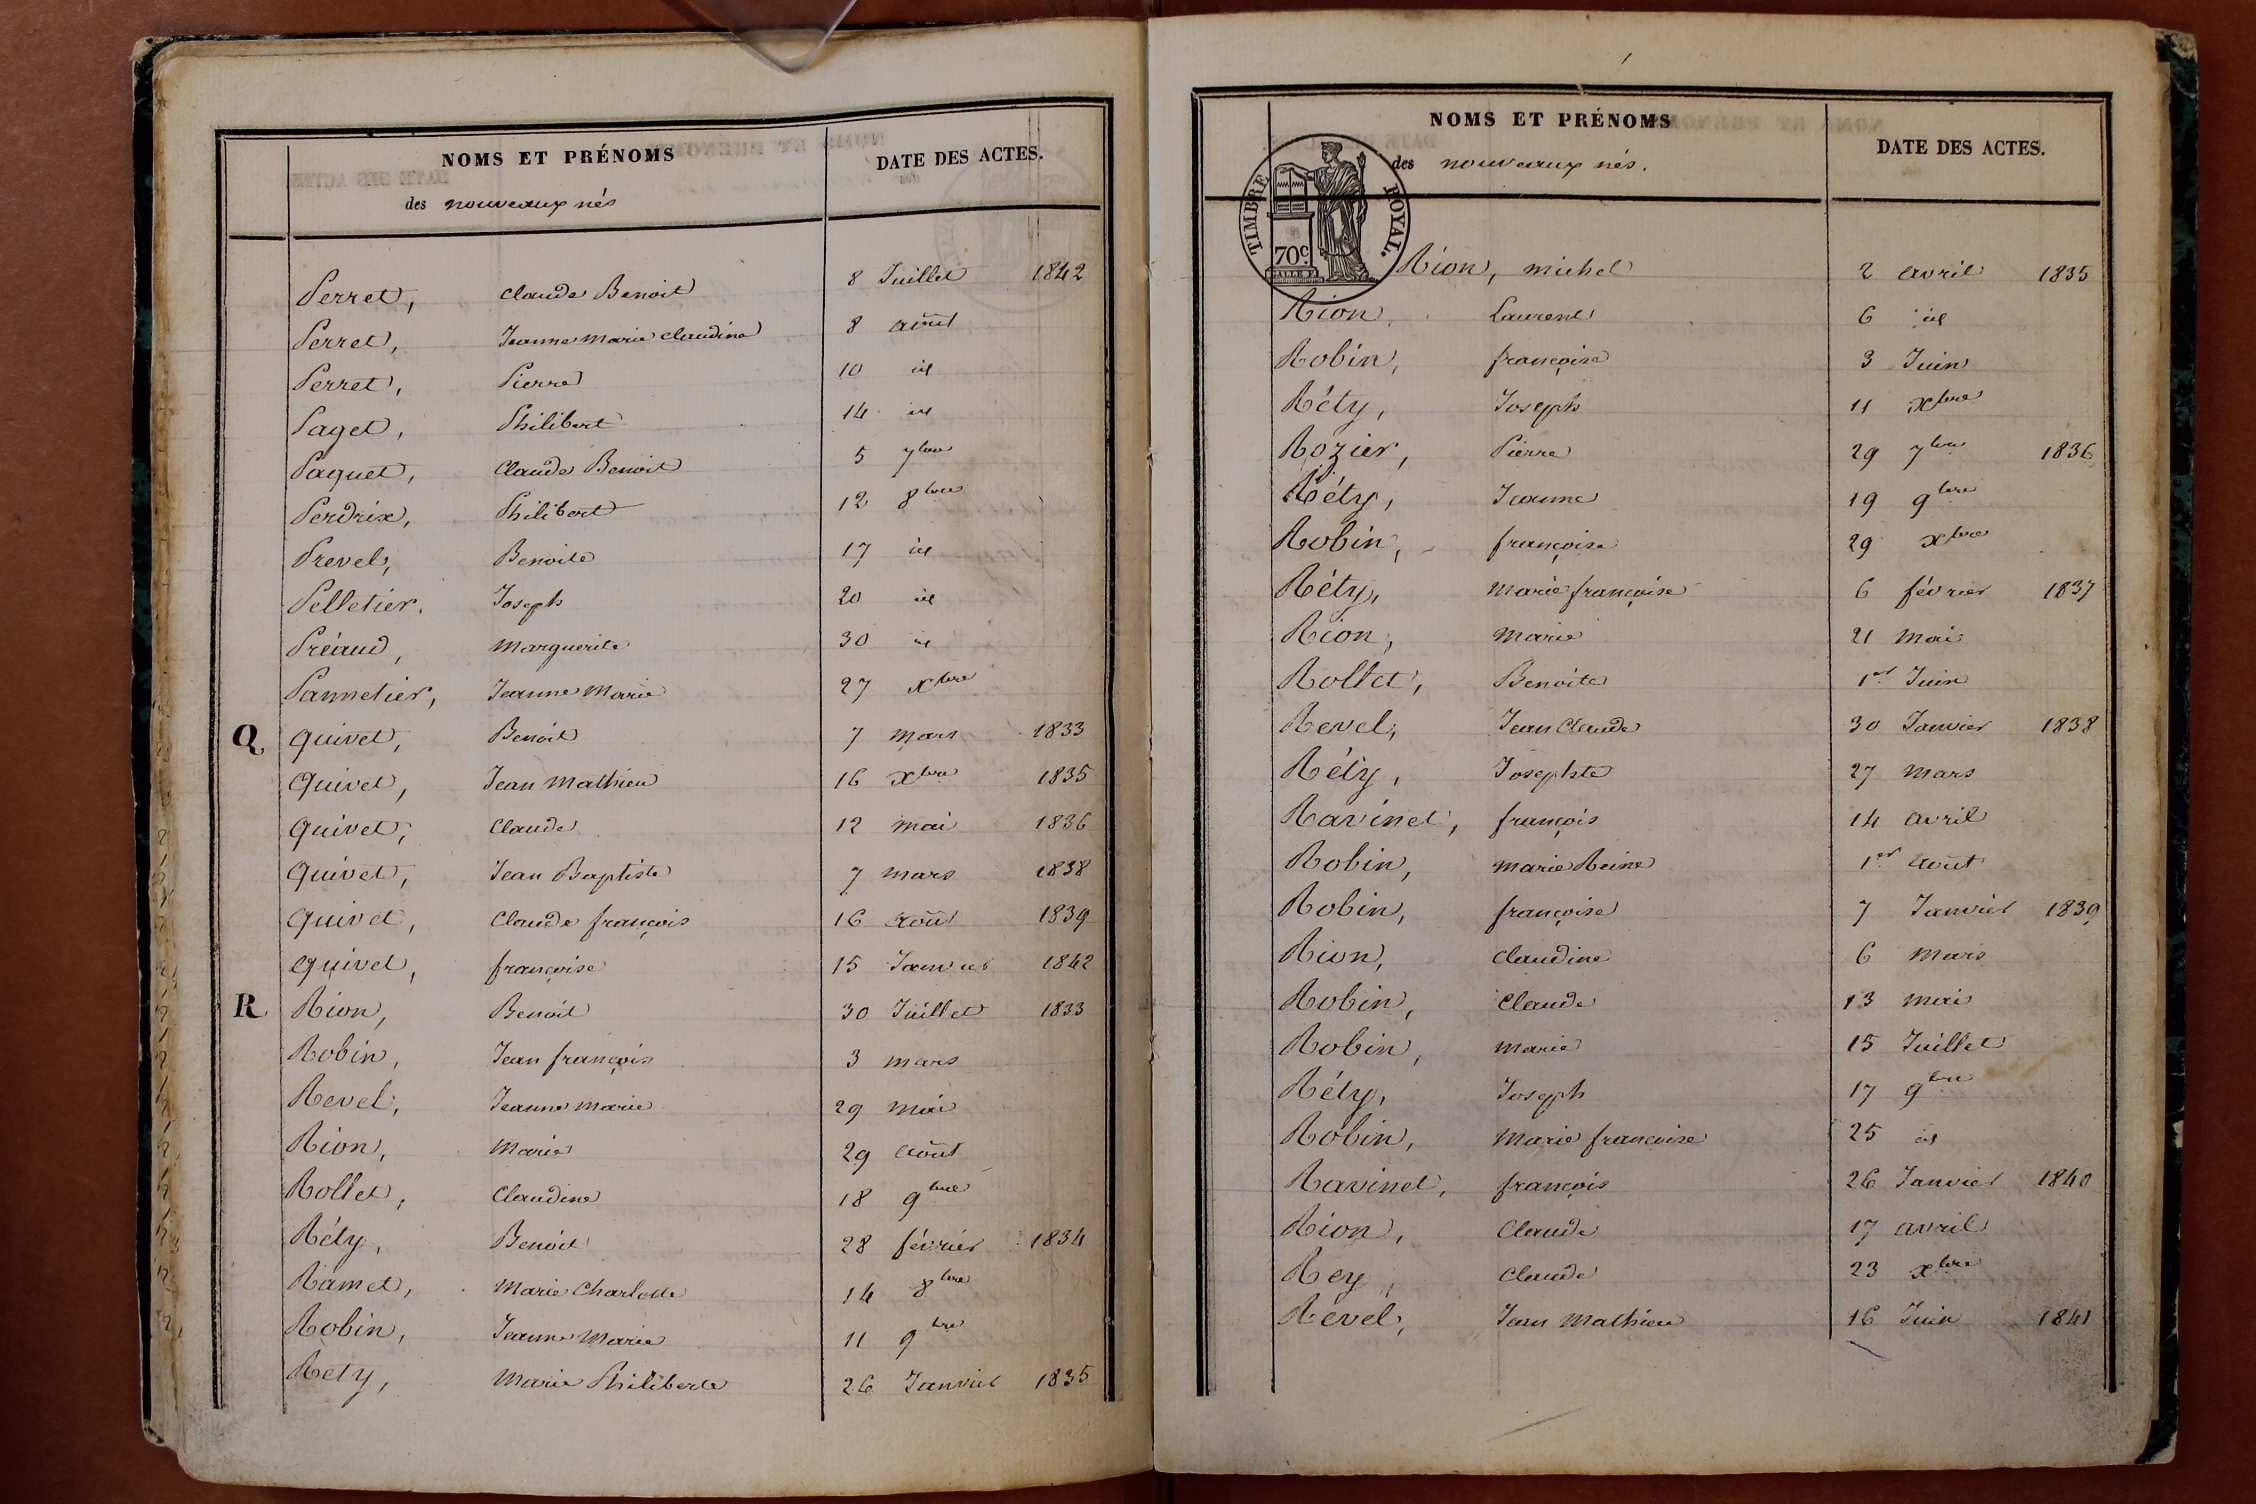 NOMS ET PRÉNOMS
DATE DES ACTES.
des nouveaux nés
Perret, Claude Benoit 8 Juillet 1842
Perret, Jeanne Marie Claudine 8 août
Perret, Pierre 10 id
Paget, Philibert 14 id
Paquet, Claude Benoit 5 7bre
Perdrix, Philibert 12 8bre
Prevel, Benoite 17 id
Pelletier, Joseph 20 id
Préaud, Marguerite 30 id
Pannetier, Jeanne Marie 27 Xbre
Q Quivet, Benoit 7 Mars 1833
Quivet, Jean Mathieu 16 Xbre 1835
Quivet, Claude 12 Mai 1836
Quivet, Jean Baptiste 7 Mars 1838
Quivet, Claude françois 16 Août 1839
Quivet, françoise 15 Janvier 1842
R Rion, Benoit 30 Juillet 1833
Robin, Jean françois 3 Mars
Revel, Jeanne Marie 29 Mai
Rion, Marie 29 Août
Rollet, Claudine 18 9bre
Réty, Benoit 28 février 1834
Ramet, Marie Charlotte 14 8bre
Robin, Jeanne Marie 11 9bre
Rety, Marie Philiberte 26 Janvier 1835
NOMS ET PRÉNOMS
DATE DES ACTES.
des nouveaux nés.
TIMBRE ROYAL.
70c.
Rion, Michel 2 avril 1835
Rion, Laurent 6 id
Robin, françoise 3 Juin
Réty, Joseph 11 Xbre
Rozier, Pierre 29 7bre 1836
Réty, Jeanne 19 9bre
Robin, françoise 29 Xbre
Réty, Marie françoise 6 février 1837
Rion, Marie 21 Mai
Rollet, Benoite 1er Juin
Revel, Jean Claude 30 Janvier 1838
Réty, Josephte 27 Mars
Ravinet, françois 14 Avril
Robin, Marie Reine 1er Août
Robin, françoise 7 Janvier 1839
Rion, Claudine 6 Mars
Robin, Claude 13 Mai
Robin, Marie 15 Juillet
Réty, Joseph 17 9bre
Robin, Marie francoise 25 id
Ravinet, françois 26 Janvier 1840
Rion, Claude 17 avril
Rey, Claude 23 Xbre
Revel, Jean Mathieu 16 Juin 1841